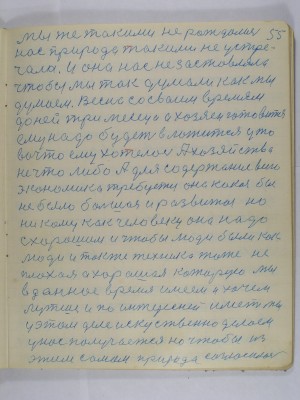 мы же такими не рождались 55
нас природа такими не устре-
чала. И она нас не заставляла
чтобы мы так думали как мы
думаем. Весна со своим временем
дней три месяца хозяин готовится
ему надо будет вложится у то
во что ему хотелося А хозяйства
не что либо А для содержание его
экономика требуется она какая бы
не была большая и развитая но
ни кому как человеку она надо
с хорошим и чтобы люди были как
люди и также техника тоже не
плохая а хорошая которую мы
в данное время имеем а хочем
лутше и по интересней иметь мы
у этом деле искуственно делаем
у нас получается но чтобы из
этим самим природа согласилась